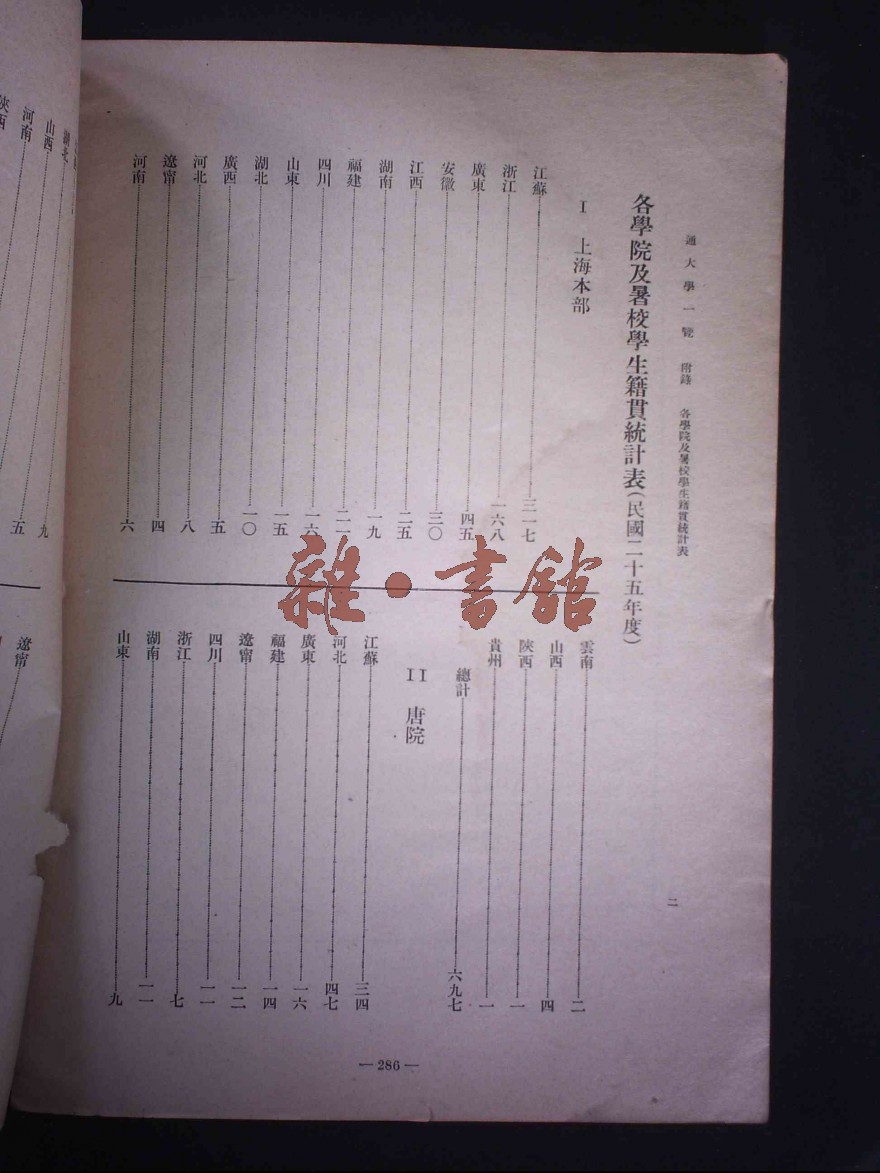 通大學一覽　附錄　各學院及暑校學生籍貫統計表
二
各學院及暑校學生籍貫統計表(民國二十五年度)
I　上海本部
江蘇 三一七
浙江 一六八
廣東 四五
安徽 三〇
江西 二五
湖南 一九
福建 二一
四川 一六
山東 一五
湖北 一〇
廣西 五
河北 八
遼甯 四
河南 六
雲南 二
山西 四
陝西 一
貴州 一
總計 六九七
II　唐院
江蘇 三四
河北 四七
廣東 一六
福建 一四
遼甯 一二
四川 一一
浙江 七
湖南 一一
山東 九
— 286 —
湖北 九
山西 五
河南
陝西
遼甯
雜·書館